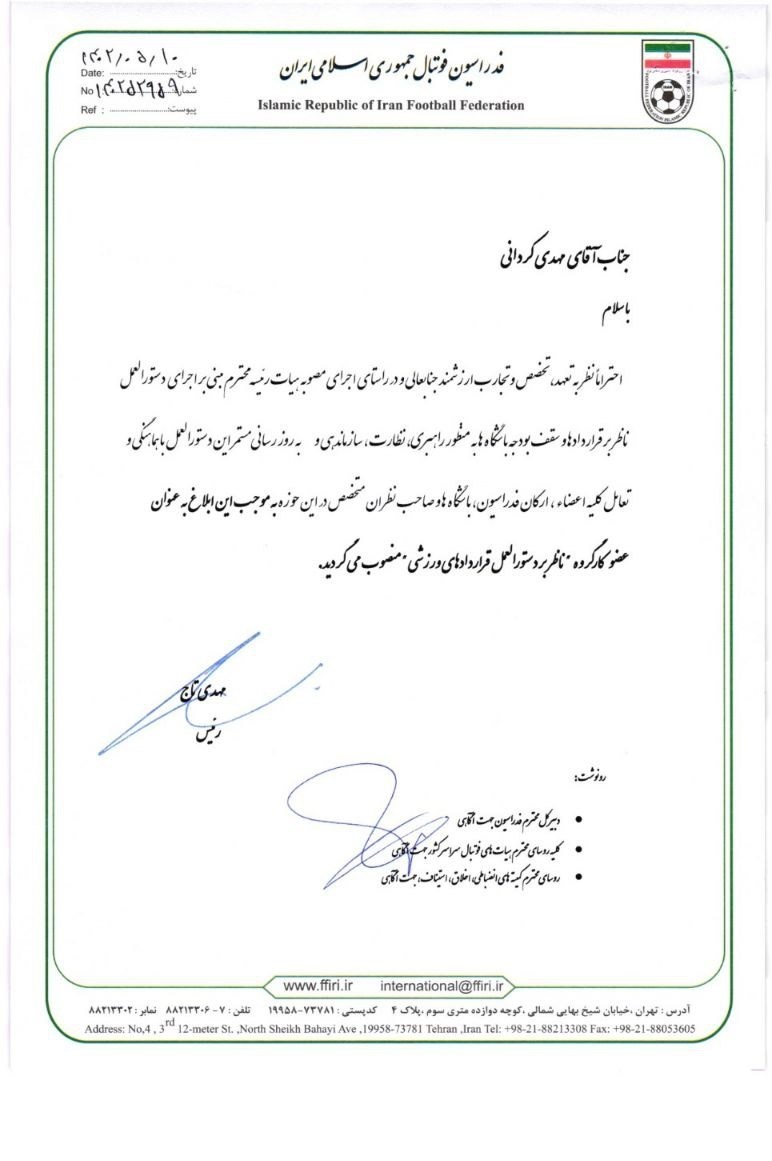 ۱۴۰۲/۰۵/۱۰
Date: تاریخ:
No ۱۴۰۲۵۲۹۵۹ شماره
Ref : پیوست:
فدراسیون فوتبال جمهوری اسلامی ایران
Islamic Republic of Iran Football Federation
جناب آقای مهدی کردانی
باسلام
احتراماً نظر به تعهد، تخصص و تجارب ارزشمند جنابعالی و در راستای اجرای مصوبه هیات رئیسه محترم مبنی بر اجرای دستورالعمل
ناظر بر قراردادها و سقف بودجه باشگاه ها به منظور راهبری، نظارت، سازماندهی و به روز رسانی مستمر این دستورالعمل با هماهنگی و
تعامل کلیه اعضاء ، ارکان فدراسیون، باشگاه ها و صاحب نظران متخصص در این حوزه به موجب این ابلاغ به عنوان
عضو کارگروه "ناظر بر دستورالعمل قراردادهای ورزشی" منصوب می گردید.
مهدی تاج
رئیس
رونوشت:
• دبیرکل محترم فدراسیون جهت آگاهی
• کلیه روسای محترم هیات های فوتبال سراسر کشور جهت آگاهی
• روسای محترم کمیته های انضباطی، اخلاق، استیناف، جهت آگاهی
www.ffiri.ir international@ffiri.ir
آدرس : تهران ،خیابان شیخ بهایی شمالی ،کوچه دوازده متری سوم ،پلاک ۴ کدپستی : ۷۳۷۸۱-۱۹۹۵۸ تلفن : ۷ - ۸۸۲۱۳۳۰۶ نمابر : ۸۸۲۱۳۳۰۲
Address: No,4 , 3rd 12-meter St. ,North Sheikh Bahayi Ave ,19958-73781 Tehran ,Iran Tel: +98-21-88213308 Fax: +98-21-88053605